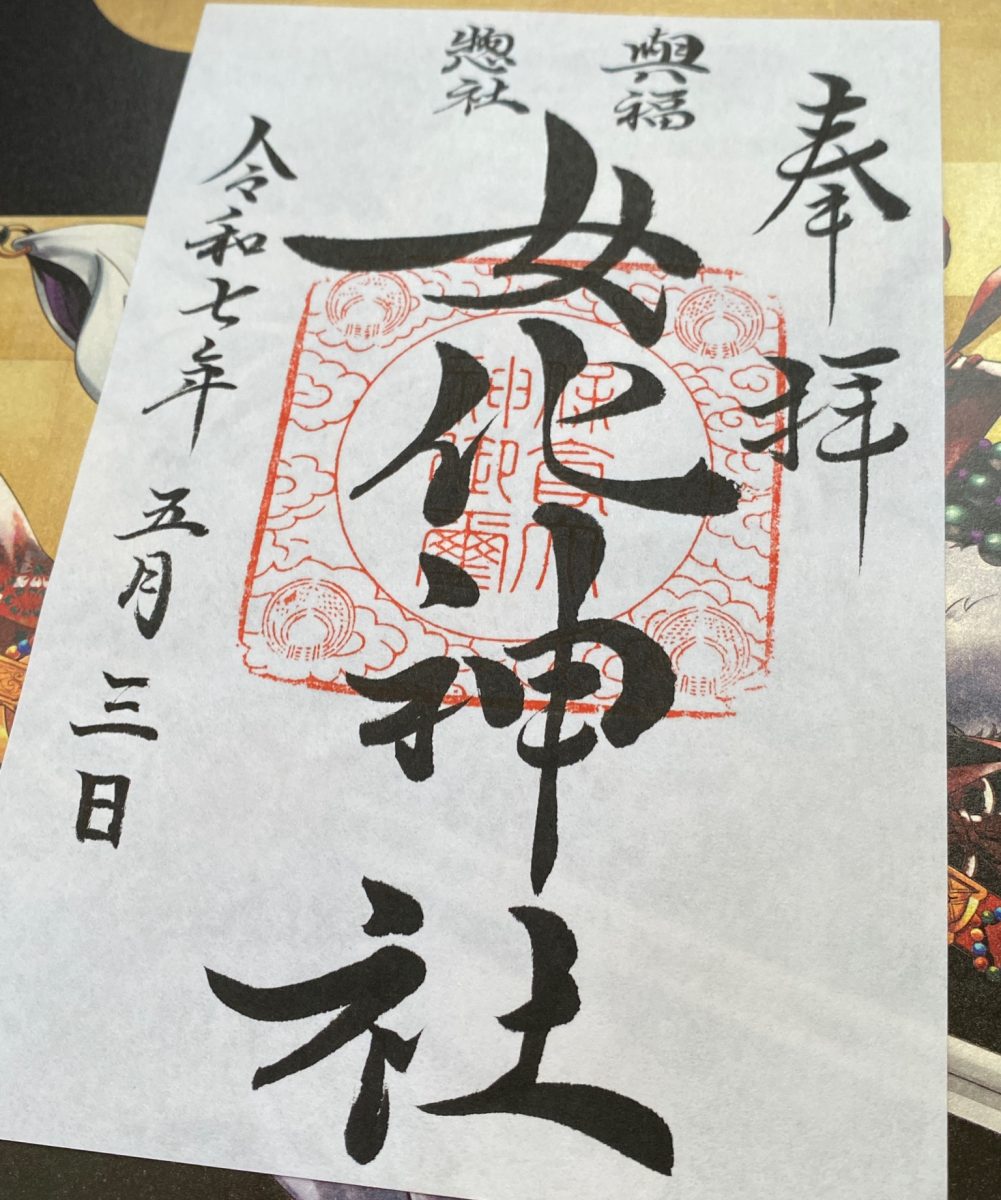 奉拝
興福
惣社
女化神社
保食大
神御璽
令和七年五月三日